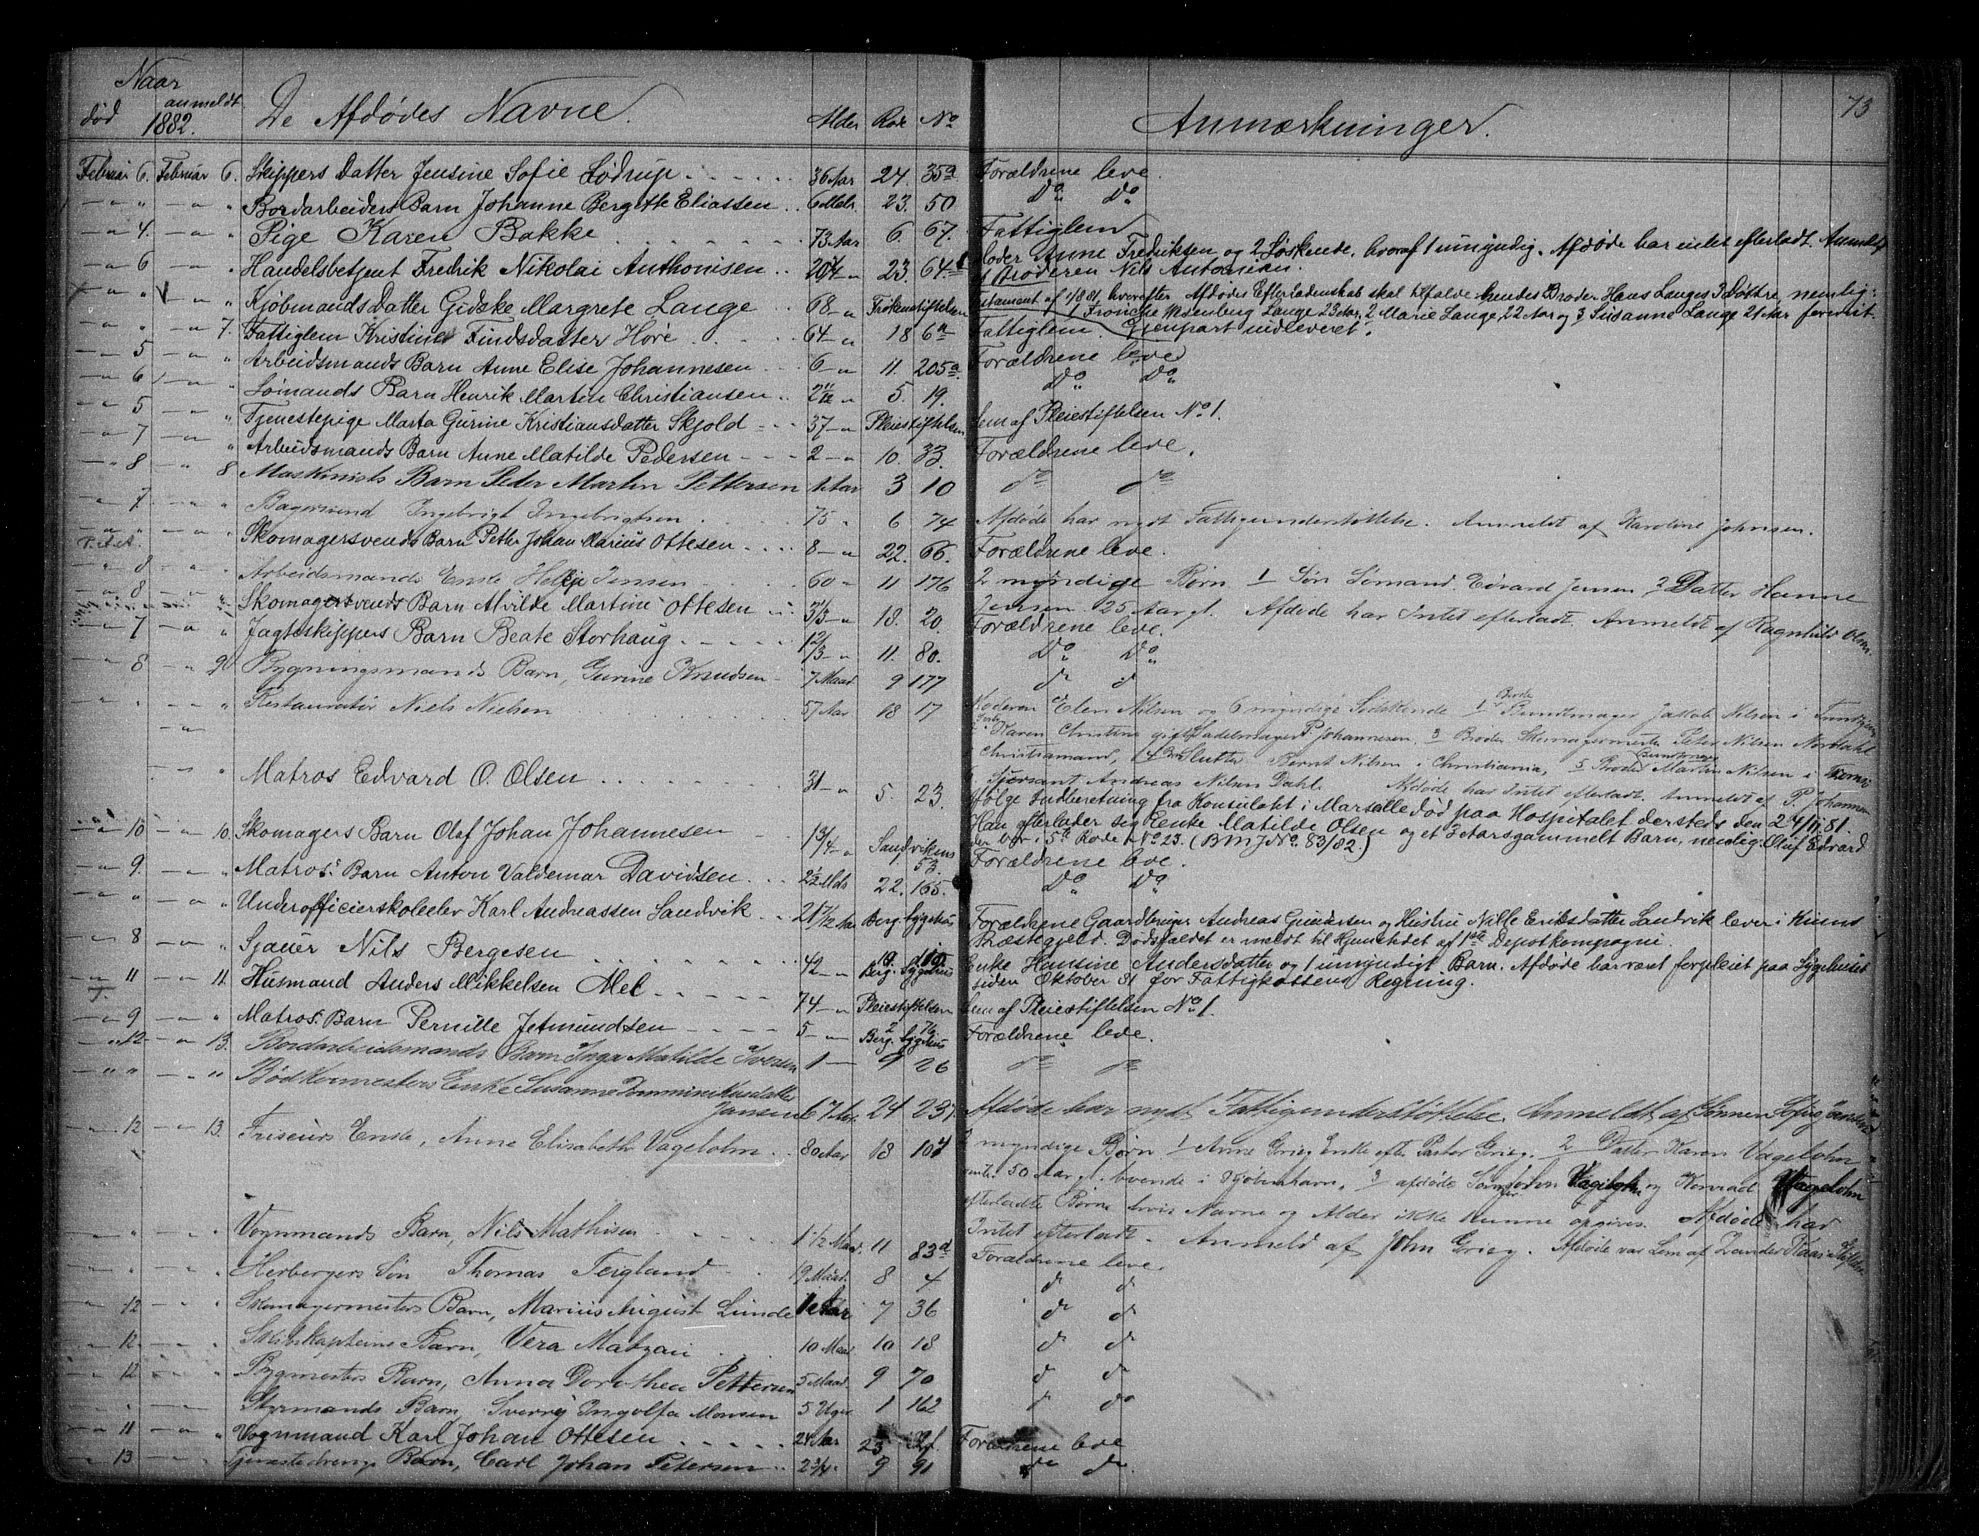 Naar
død anmeldt De Afdødes Navne. Alder Rode No Anmærkninger. 73
1882.
Februar 6. Februar 6. Skippers Datter Jensine Sofie Lødrup. 36 Aar 24. 35a Forældrene leve.
" " " Bordarbeiders Barn Johanne Bergitte Eliassen 6 Mdr. 23. 50 Do Do
4. " Pige Karen Bakke 73 Aar 6. 67. Fattiglem
6 " Handelsbetjent Fredrik Nikolai Anthonisen 20¾ " 23. 64 Moder Anne Fredriksen og 2 Søskende, hvoraf 1 umyndig. Afdøde har intet efterladt. Anmeldt
af Broderen Nils Antonisen.
" " Kjøbmands Datter Gidske Margrete Lange 68 " Frøkenstiftelsen Testament af 1881 hvorefter Afdødes Efterladenskab skal tilfalde hendes Broder Hans Langes 3 Døttre, nemlig:
Lange 23 Aar, 2 Marie Lange, 22 Aar og 3 Susanne Lange 21 Aar forevist.
" 7. Fattiglem Kristine Findsdatter Hove 64 " 18 6a Fattiglem. Gjenpart indleveret.
5 " Arbeidsmands Barn Anne Elise Johannesen 6 " 11. 205a. Forældrene leve
6 " Sømands Barn Henrik Martin Christiansen 2 " 5. 19. Do Do
5 " Tjenestepige Marta Gurine Kristiansdatter Skjold 37 " Pleiestiftelsen Lem af Pleiestiftelsen No 1.
7 " Arbeidsmands Barn Anne Matilde Pedersen 2 " 10. 33. Forældrene leve.
8 " 8 Maskinists Barn Peder Martin Pettersen 1 Aar 3 10 do do
7. " Bagersvend Ingebrigt Ingebrigtsen 75 " 6 74 Afdøde har nydt Fattigunderstøttelse. Anmeldt af Karoline Johnsen.
" " Skomagersvends Barn Petter Johan Marius Ottesen 8 " 22. 66. Forældrene leve.
8 " Arbeidsmands Enke Helje Jensen 60 " 11 176 2 myndige Børn 1 Søn Sømand Edvard Jensen 2 Datter Hanne
Jensen 25 Aar gl. Afdøde har Intet efterladt. Anmeldt af Ragnhild Olsen.
8 " Skomagersvends Barn Alvilde Martine Ottesen 3⅓ " 18. 20. Forældrene leve.
7 " Jagteskippers Barn Beate Storhaug 1⅔ " 11. 80. Do Do
8 " 9. Bygningsmands Barn, Gurine Knudsen 7 Maad. 9 177 do do
" " Restauratør Niels Nielsen 57 Aar 18 17 Moderen Elen Nilsen og 6 myndige Sødskende 1 Broder Bundtmager Jakob Nilsen i Trondhjem
Karen Christine gift Sadelmager P. Johannesen. 3 Broder Skomagermester Peter Nilsen Nordahl
i Christiansand, 4 Bernt Nilsen i Christiania, 5 Broder Bundtmager Martin Nilsen i Tromsø
6 Sjersant Andreas Nilsen Dahl. Afdøde har Intet efterladt. Anmeldt af P. Johannesen
" " Matros Edvard O. Olsen 31 " 5. 23. Ifølge Indberetning fra Konsulatet i Marseille død paa Hospitalet dersteds den 24/11 81.
Han efterlader sig Enke Matilde Olsen og et 3 Aarsgammelt Barn, nemlig: Oluf Edvard
der bor i 5te Rode No 23. (BMJ No. 83/82.)
10 " 10. Skomagers Barn Olaf Johan Johannesen 1¾ " Sandvikens 53. Forældrene leve.
9. " Matros's Barn Anton Valdemar Davidsen 2½ Mds 22. 165. Do Do
" " Underofficierskoleelev Karl Andreassen Sandvik 21 Aar Berg. Sygehus Forældrene Gaardbruger Andreas Gundersen og Hustru Nille Eriksdatter Sandvik lever i Kinns
Præstegjeld. Dødsfaldet er meldt til Hjemstedet af 1ste Depotkompagni.
8 " Sjauer Nils Bergesen 42 " Berg. Sygehus Enke Hansine Andersdatter og 1 umyndigt Barn. Afdøde har været forpleiet paa Sygehuset
siden Oktober 81 for Fattigkassens Regning.
11 " 11. Husmand Anders Mikkelsen Mel 74 " Pleiestiftelsen Lem af Pleiestiftelsen No 1.
9 " Matros's Barn Pernille Jetmundsen 5 " Berg. Sygehus Forældrene leve.
12 " 13. Bordarbeidsmands Barn Inga Matilde Iversen 1 " 9 26 do do
" " Bødkermesters Enke Susanne
Jansen 67 Aar 24 237. Afdøde har nydt Fattigunderstøttelse. Anmeldt af
12 " 13. Friseurs Enke, Anne Elisabeth Vagelohn 80 Aar 18 104 2 myndige Børn 1 Anne Grieg Enke efter Pastor Grieg. 2 Datter Karen Vagelohn
50 Aar gl. boende i Kjøbenhavn, 3 afdøde Vagelohn og Konrad Vagelohn
efterladte Børn hvis Navne og Alder ikke kunne opgives. Afdøde har
Intet efterladt. Anmeld af John Grieg. Afdøde var Lem af Zander Kaas Stiftelse
" " Vognmands Barn, Nils Mathisen 1½ Maad. 11 83d Forældrene leve.
" " Herbergers Søn Thomas Teigland 19 Maad. 8 4 do do
12 " Skomagermesters Barn, Marius August Lunde Aar 7 36 do do
12 " Skibskapteins Barn, Vera Matzau 10 Maad. 10 18 do do
12 " Bygmesters Barn, Anna Dorothea Pettersen 5 Maad. 9 70 do do
" " Styrmands Barn, Sverry Ingolfa Monsen 5 Uger 1 162 do do
11 " Vognmand Karl Johan Ottesen 24 Aar 23 Forældrene leve
13 " Tjenestedrengs Barn, Carl Johan Petersen 2¾ " 9 91 do do.